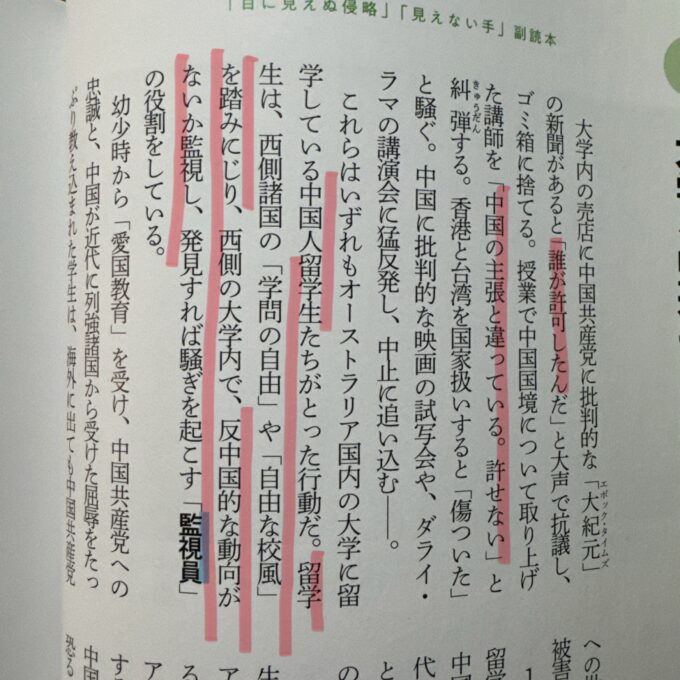 「目に見えぬ侵略」「見えない手」副読本
大学内の売店に中国共産党に批判的な「大紀元」
エポック・タイムズ
の新聞があると「誰が許可したんだ」と大声で抗議し、
ゴミ箱に捨てる。授業で中国国境について取り上げ
た講師を「中国の主張と違っている。許せない」と
糾弾する。香港と台湾を国家扱いすると「傷ついた」
きゅうだん
と騒ぐ。中国に批判的な映画の試写会や、ダライ・
ラマの講演会に猛反発し、中止に追い込む――。
これらはいずれもオーストラリア国内の大学に留
学している中国人留学生たちがとった行動だ。留学
生は、西側諸国の「学問の自由」や「自由な校風」
を踏みにじり、西側の大学内で、反中国的な動向が
ないか監視し、発見すれば騒ぎを起こす「監視員」
の役割をしている。
幼少時から「愛国教育」を受け、中国共産党への
忠誠と、中国が近代に列強諸国から受けた屈辱をたっ
ぷり教え込まれた学生は、海外に出ても中国共産党
への
被害
留学
代
と
の
生
ア
る
ア
す
中国
恐る